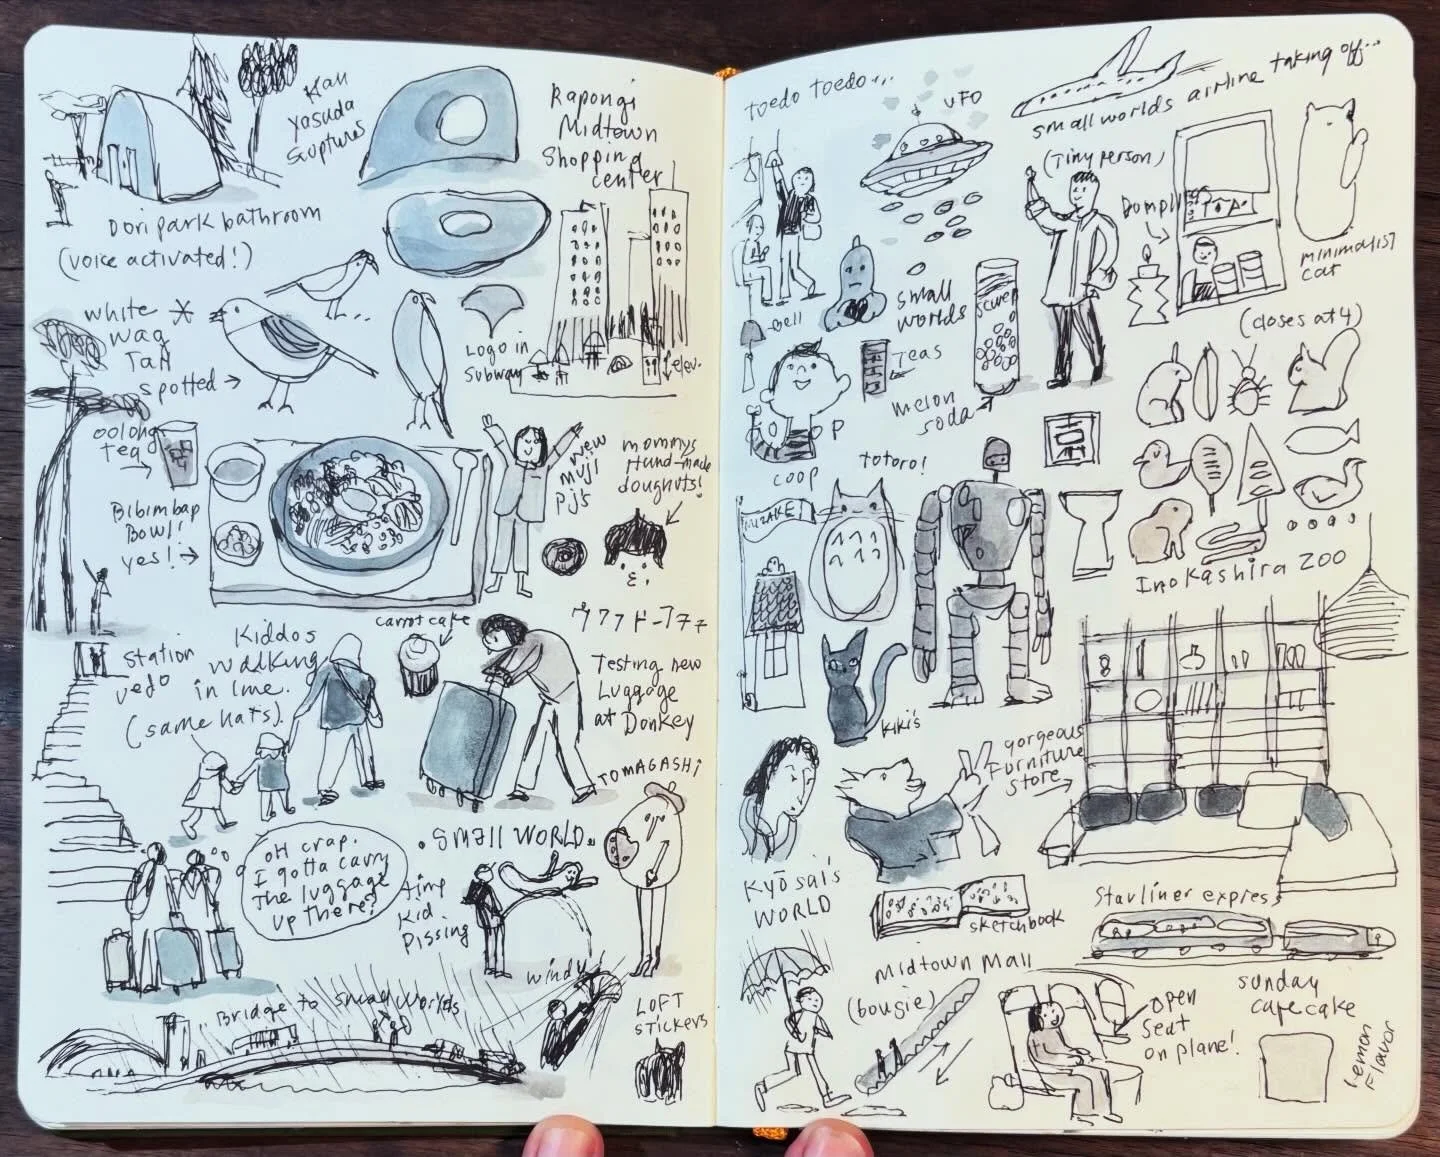 Kan
Yasuda
Sculptures
Rapongi
Midtown
Shopping
center
Dori park bathroom
(voice activated!)
white
wag
Tail
spotted →
Logo in
Subway
elev.
oolong
tea
→
Bibimbap
Bowl!
yes! →
new
Muji
Pj's
mommys
Hand-made
doughnuts!
carrot cake
Station
uedo
Kiddos
walking
in line.
(same hats)
Testing new
Luggage
at Donkey
TOMAGASHi
oH crap.
I gotta carry
The luggage
up there?
. Small WORLD.
Kid
pissing
windy
Bridge to Small Worlds
LOFT
STICKERS
toedo toedo...
UFO
small worlds airline taking off...
(Tiny person)
minimalist
cat
small
worlds
Bell
Teas
melon
soda
coop
(closes at 4)
totoro!
Inokashira zoo
Kiki's
gorgeous
Furniture
store →
Kyōsai's
WORLD
sketchbook
Starliner express
Midtown Mall
(bougie)
open
Seat
on plane!
sunday
cafe cake
lemon
Flavor